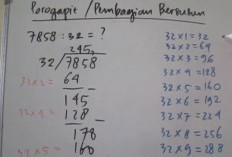 Porogapit / Pembagian Bersusun
7858 : 32 = ?
245,
32 / 7858
32 x 2 = 64 -
145
32 x 4 = 128 -
178
32 x 5 = 160
32 x 1 = 32
32 x 2 = 64
32 x 3 = 96
32 x 4 = 128
32 x 5 = 160
32 x 6 = 192
32 x 7 = 224
32 x 8 = 256
32 x 9 = 288